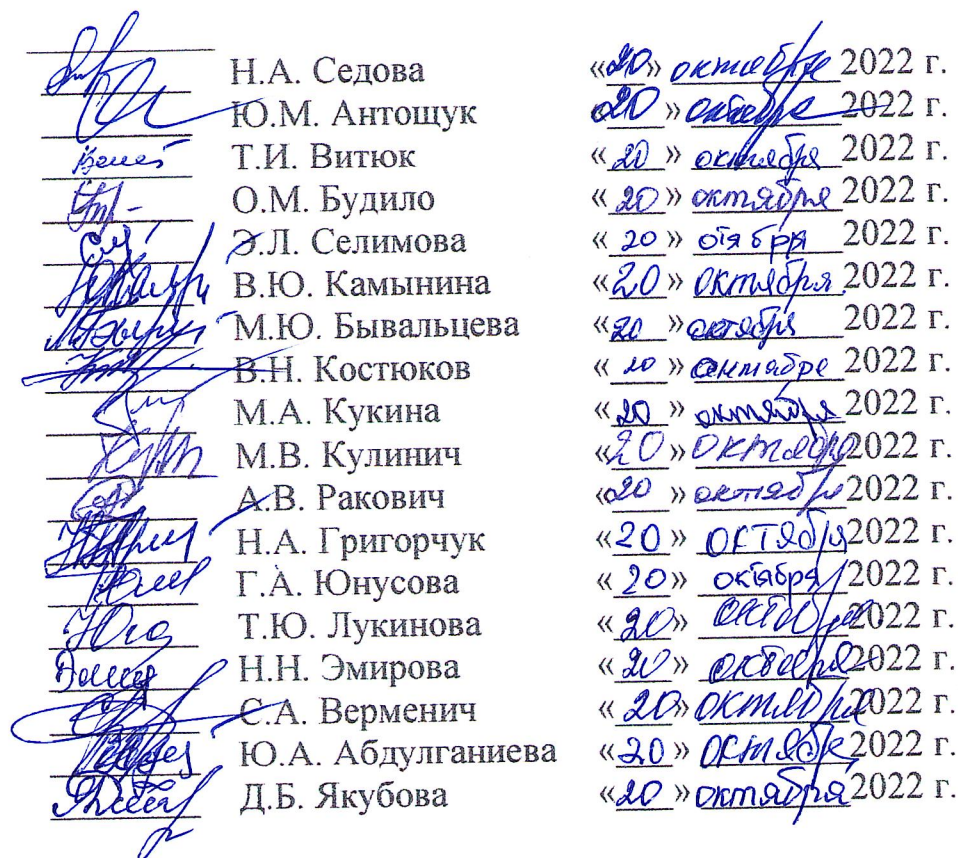 Н.А. Седова «20» октября 2022 г.
Ю.М. Антощук «20» октября 2022 г.
Т.И. Витюк «20» октября 2022 г.
О.М. Будило «20» октября 2022 г.
Э.Л. Селимова «20» отября 2022 г.
В.Ю. Камынина «20» октября 2022 г.
М.Ю. Бывальцева «20» октября 2022 г.
В.Н. Костюков «20» 2022 г.
М.А. Кукина «20» октября 2022 г.
М.В. Кулинич «20» октября 2022 г.
А.В. Ракович «20» октября 2022 г.
Н.А. Григорчук «20» октября 2022 г.
Г.А. Юнусова «20» октября 2022 г.
Т.Ю. Лукинова «20» октября 2022 г.
Н.Н. Эмирова «20» октября 2022 г.
С.А. Верменич «20» октября 2022 г.
Ю.А. Абдулганиева «20» октября 2022 г.
Д.Б. Якубова «20» октября 2022 г.